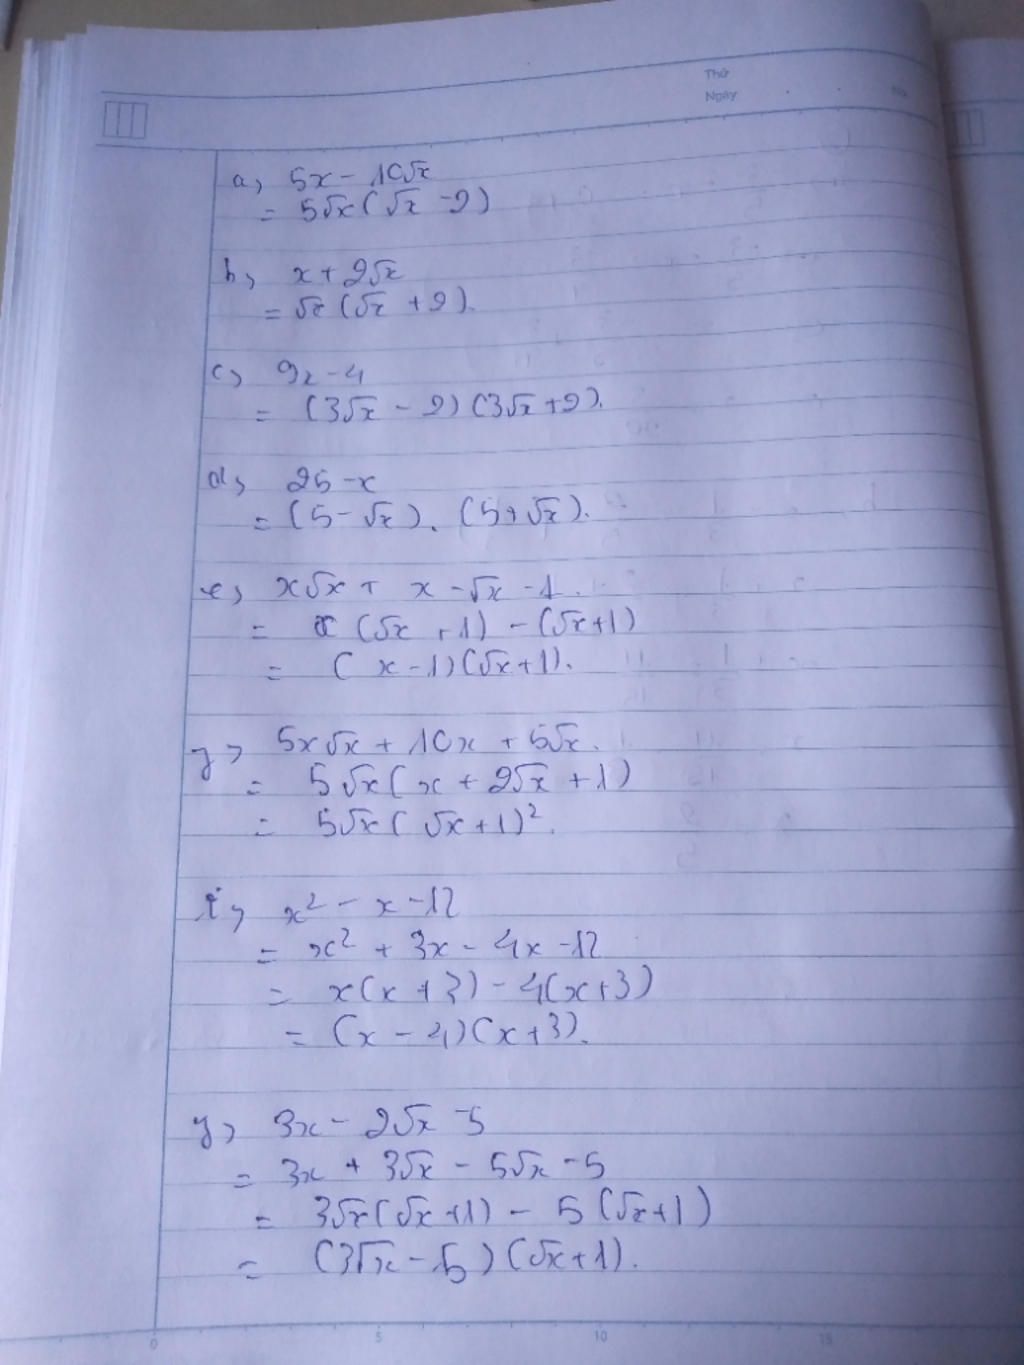 Thứ
Ngày
No
a, 5x - 10√x
= 5√x(√x - 2)
b, x + 2√x
= √x(√x + 2).
c, 9x - 4
= (3√x - 2)(3√x + 2).
d, 25 - x
= (5 - √x).(5 + √x).
e, x√x + x - √x - 1.
= x(√x + 1) - (√x + 1)
= (x - 1)(√x + 1).
g, 5x√x + 10x + 5√x.
= 5√x(x + 2√x + 1)
= 5√x(√x + 1)².
i, x² - x - 12
= x² + 3x - 4x - 12
= x(x + 3) - 4(x + 3)
= (x - 4)(x + 3).
y, 3x - 2√x - 5
= 3x + 3√x - 5√x - 5
= 3√x(√x + 1) - 5(√x + 1)
= (3√x - 5)(√x + 1).
0 5 10 15